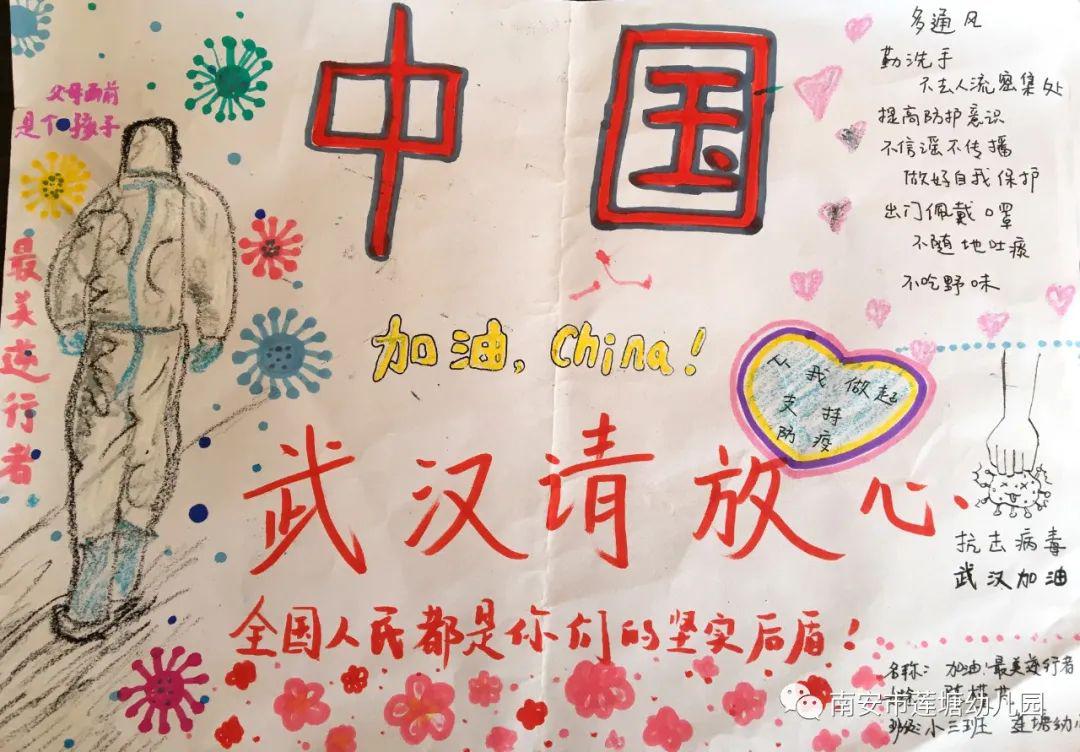 中国
父母面前
是个孩子
最美逆行者
加油，China！
武汉请放心
全国人民都是你们的坚实后盾！
多通风
勤洗手
不去人流密集处
提高防护意识
不信谣不传播
做好自我保护
出门佩戴口罩
不随地吐痰
不吃野味
从我做起
支持
防疫
抗击病毒
武汉加油
名称：加油，最美逆行者
班级：小三班 莲塘幼
南安市莲塘幼儿园